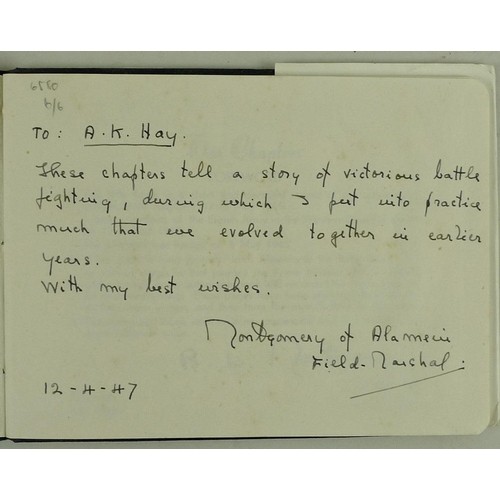 6550
6/6
To: A.K. Hay.
These chapters tell a story of victorious battle
fighting, during which I put into practice
much that we evolved together in earlier
years.
With my best wishes.
Montgomery of Alamein
Field-Marshal.
12-4-47